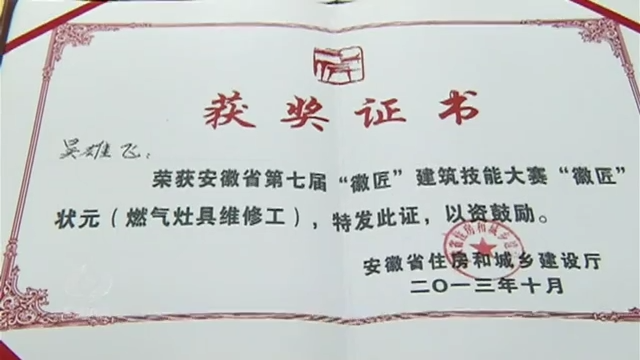 获奖证书
吴雄飞：
荣获安徽省第七届“徽匠”建筑技能大赛“徽匠”
状元（燃气灶具维修工），特发此证，以资鼓励。
安徽省住房和城乡建设厅
二〇一三年十月